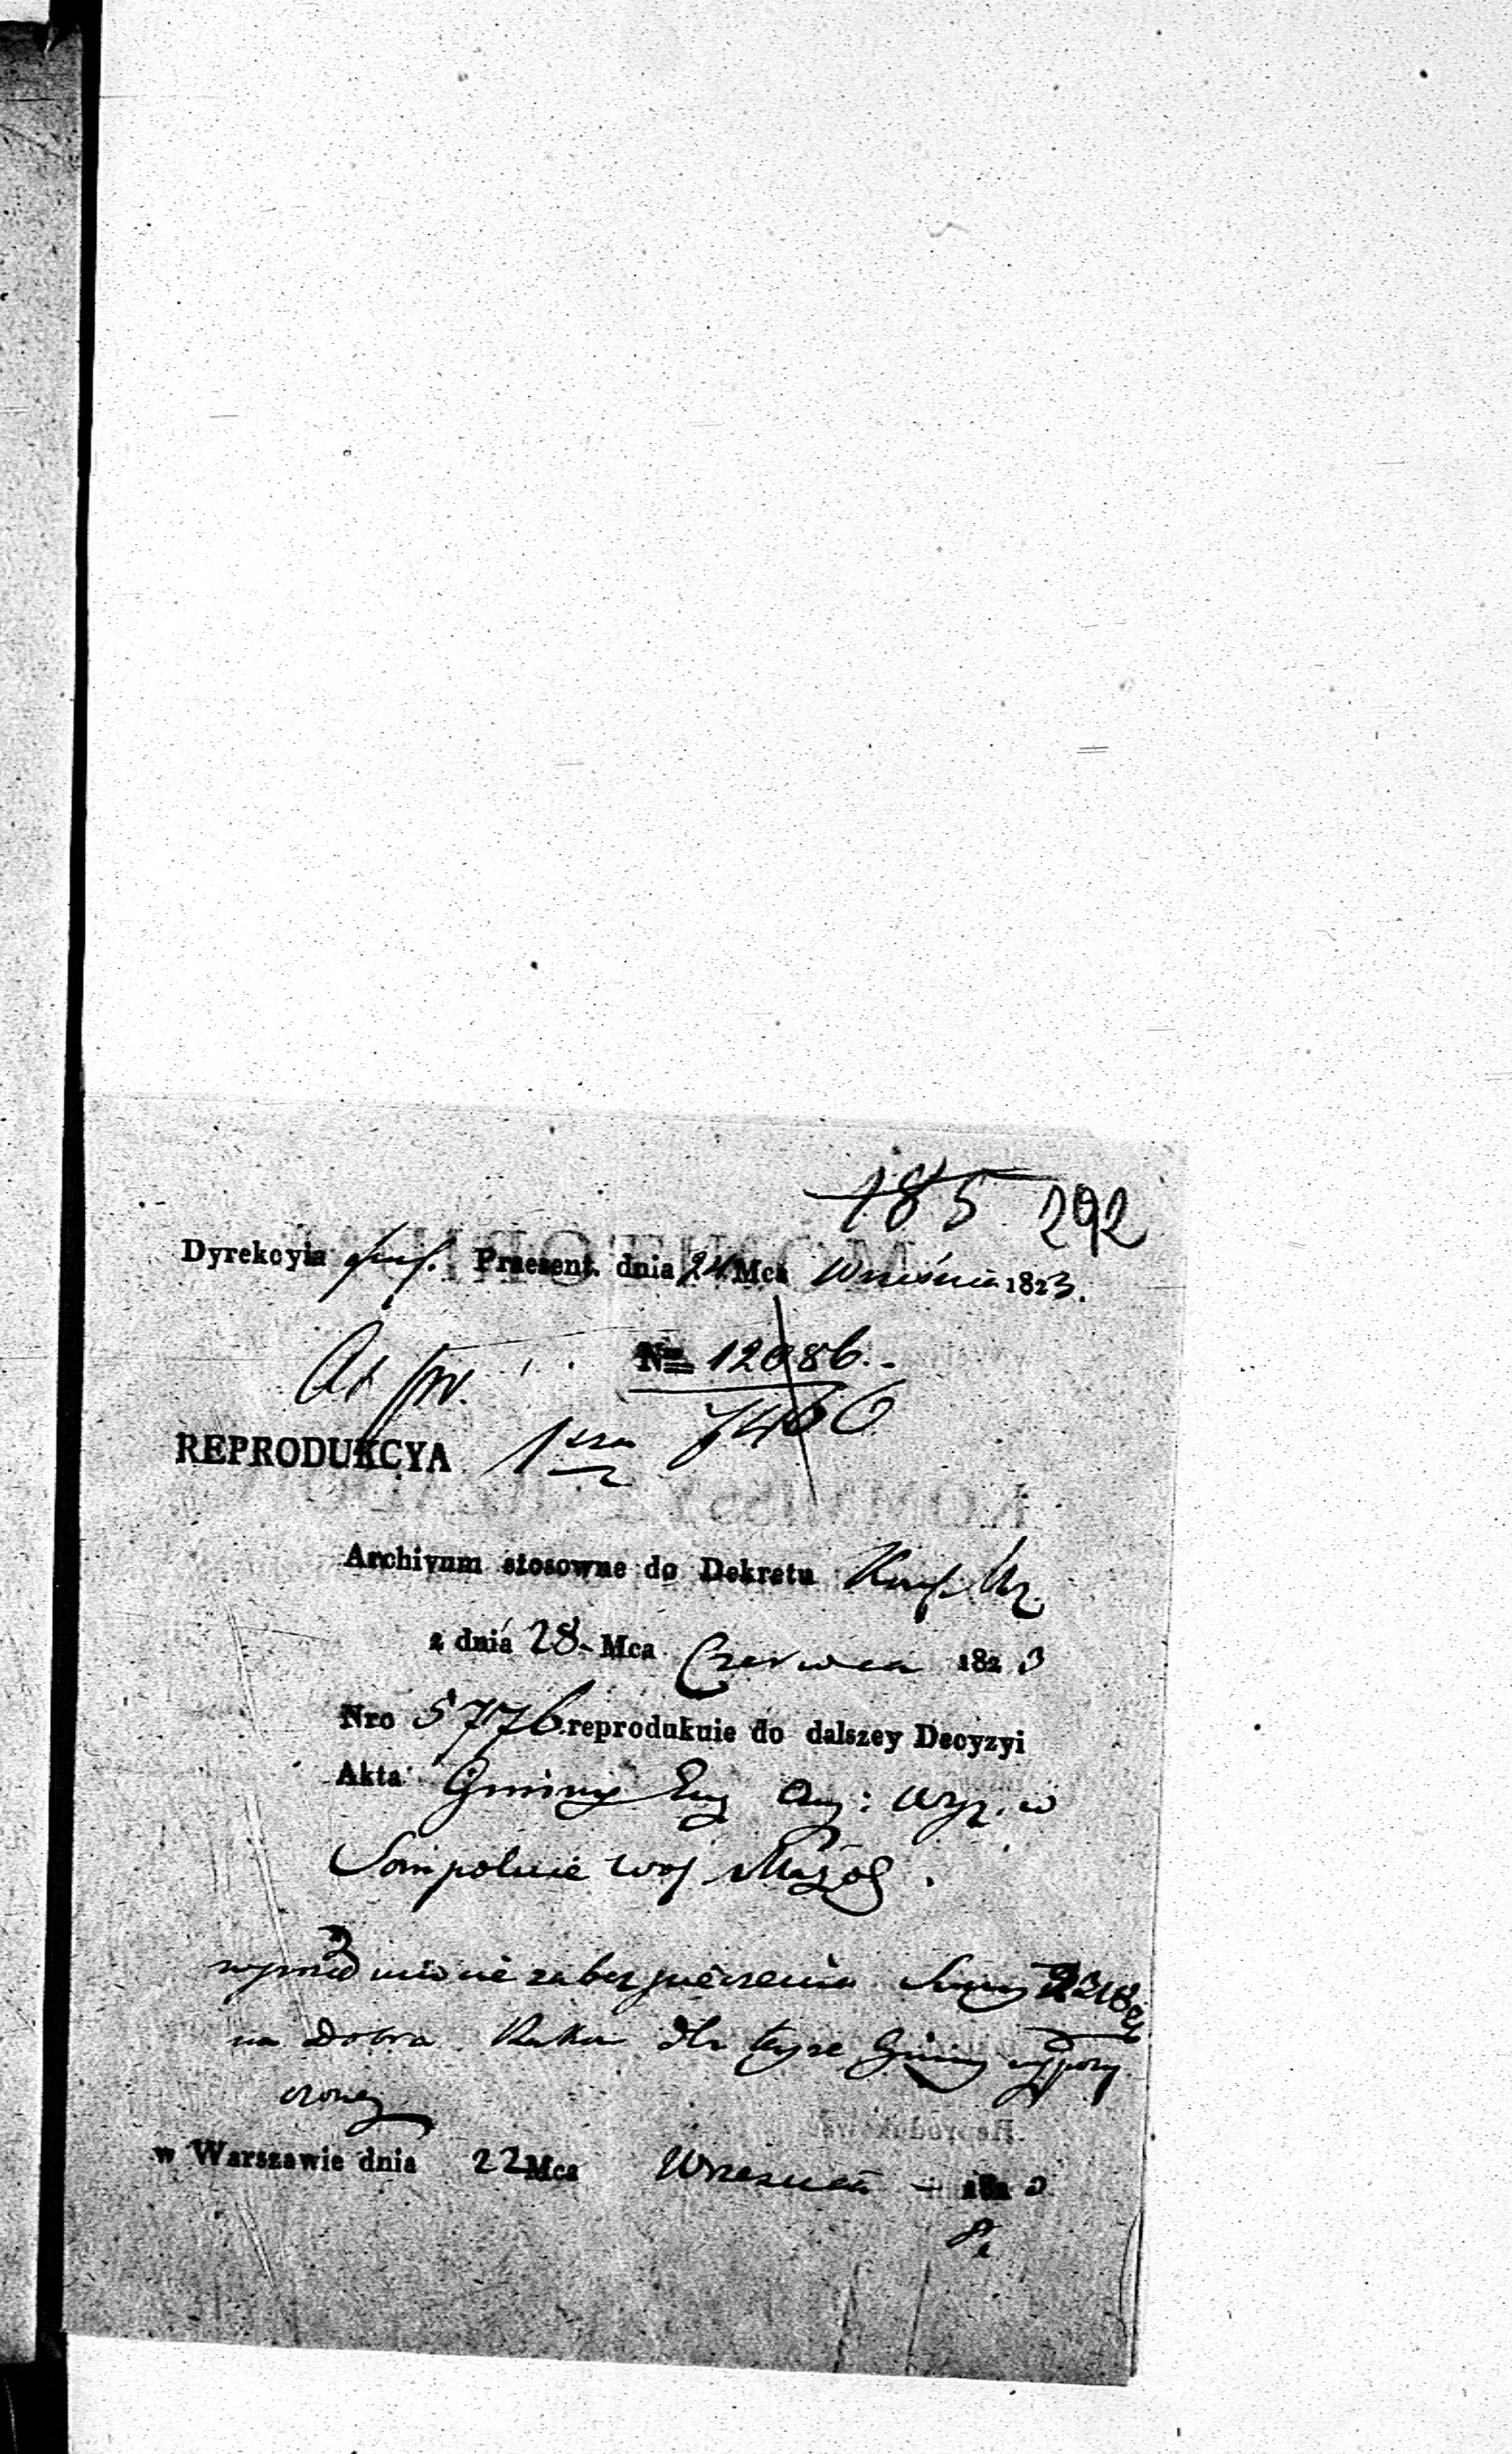 185 292
Dyrekcyia Praesent. dnia 24 Mca Września 1823.
Nro 12086.
7466
REPRODUKCYA 1sza
Archivum stosowne do Dekretu
z dnia 28 Mca Czerwca 1823
Nro 5776 reprodukuie do dalszey Decyzyi
Akta Gminy Ewg Aug: Wyz. w
Sompolnie Woj Mazow.
względem zabezpieczenia Summy
na Dobra dla teyże Gminy wypoży
czoney
w Warszawie dnia 22 Mca Września 1823